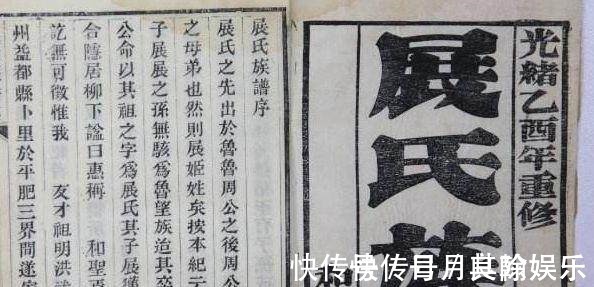 光緒乙酉年重修
展氏族
展氏族譜序
展氏之先出於魯魯周公之後
之母弟也然則展姬姓矣按本紀
子展展之孫無駭為魯望族造其卒
公命以其祖之字為展氏其子展
合隱居柳下諡曰惠稱 和聖
訖無可徵惟我 友才祖明洪
州益都縣卜里於平肥三界間遂
快传 娱乐